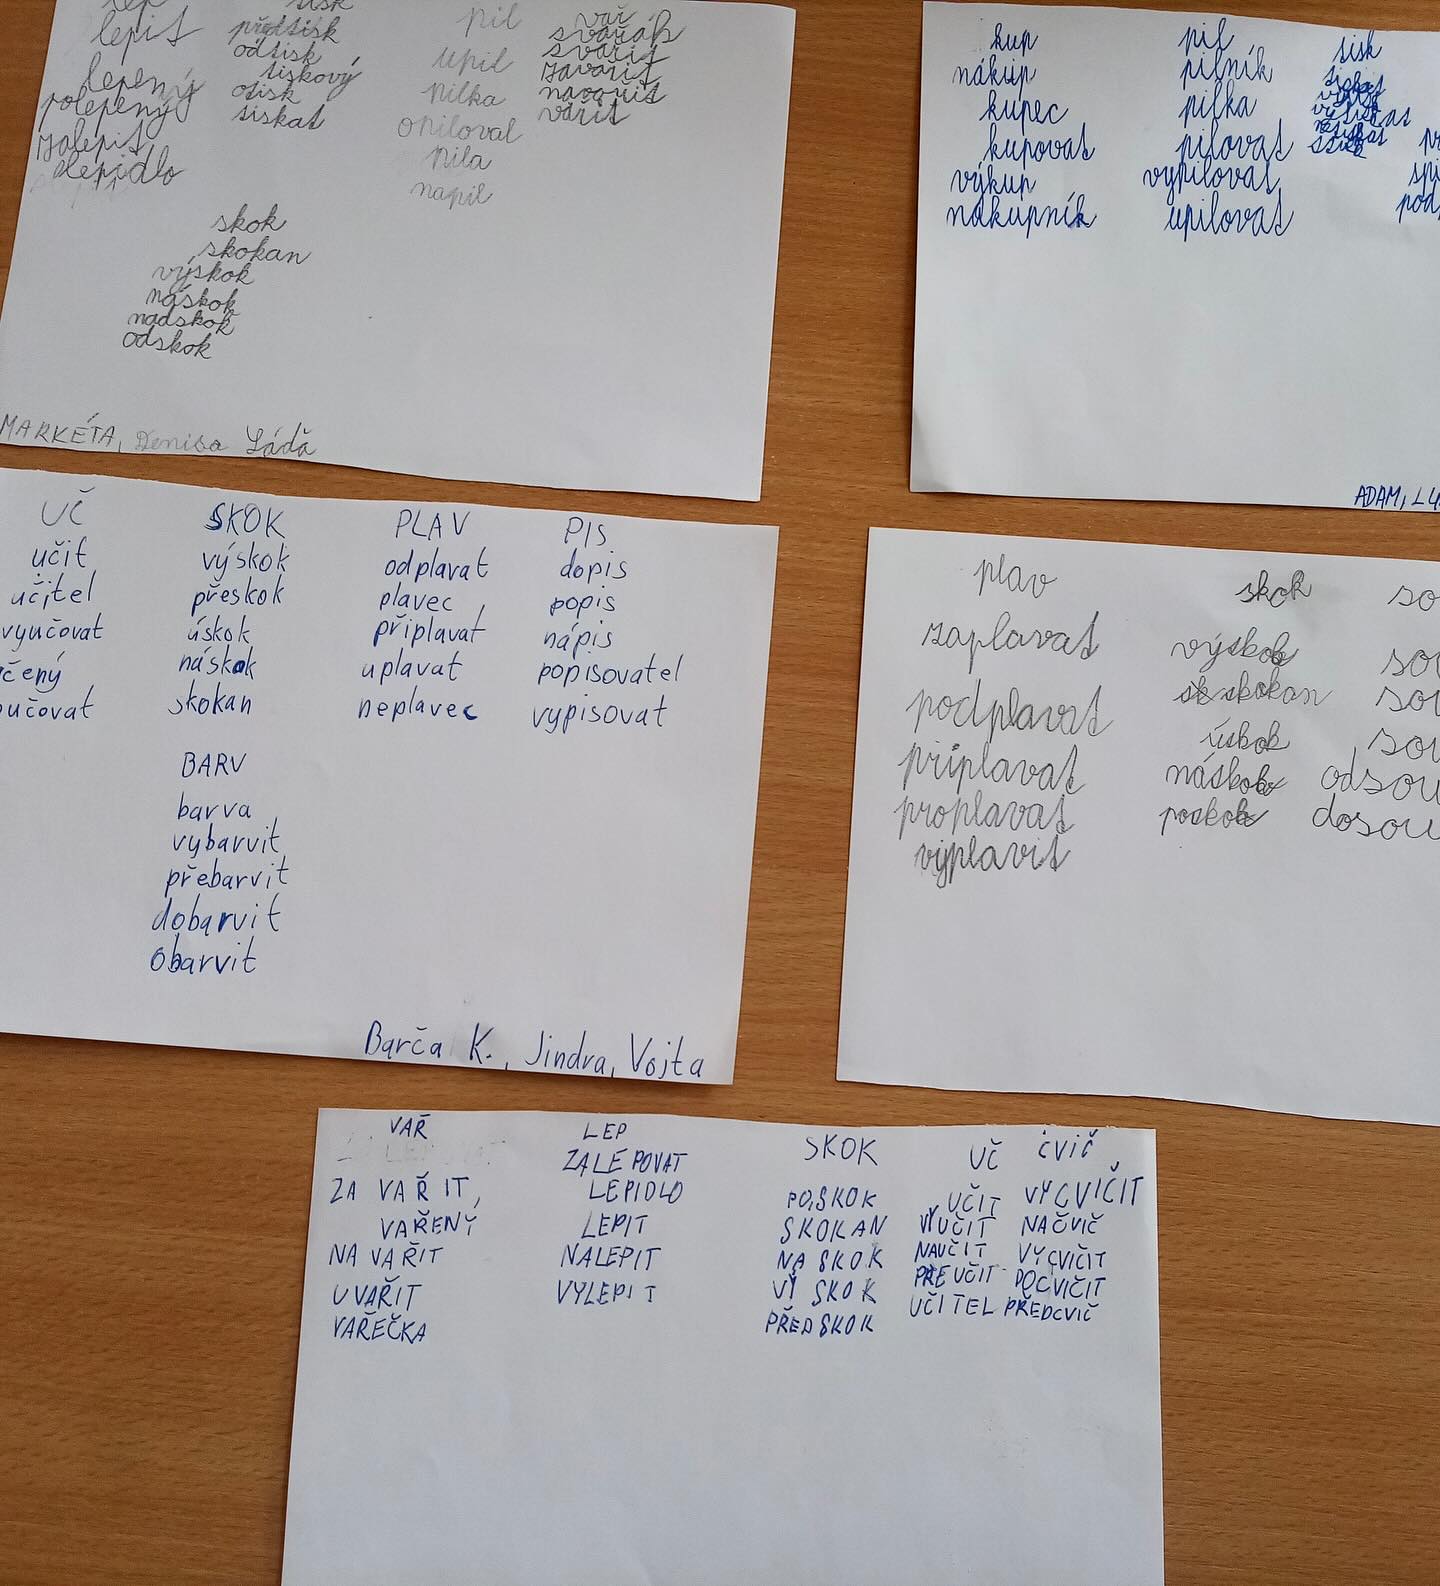 lepit
lepený
polepený
zalepit
lepidlo
tisk
předtisk
odtisk
tiskový
otisk
tiskat
pil
upil
pilka
opiloval
pila
napil
vař
svářit
zavařit
navařit
vářit
skok
skokan
výskok
náskok
nadskok
odskok
MARKÉTA, Denisa Láďa
kup
nákup
kupec
kupovat
výkup
nákupník
pil
pilník
pilka
pilovat
vypilovat
upilovat
tisk
tiskat
ADAM,
UČ
učit
učitel
vyučovat
SKOK
výskok
přeskok
úskok
náskok
skokan
PLAV
odplavat
plavec
připlavat
uplavat
neplavec
PIS
dopis
popis
nápis
popisovatel
vypisovat
BARV
barva
vybarvit
přebarvit
dobarvit
obarvit
Barča K., Jindra, Vojta
plav
zaplavat
podplavat
připlavat
proplavat
vyplavit
skok
výskok
skokan
úskok
náskok
poskok
VAŘ
ZAVAŘIT,
VAŘENÝ
NAVAŘIT
UVAŘIT
VAŘEČKA
LEP
ZALEPOVAT
LEPIDLO
LEPIT
NALEPIT
VYLEPIT
SKOK
POSKOK
SKOKAN
NASKOK
VÝSKOK
PŘEDSKOK
UČ
UČIT
VYUČIT
NAUČIT
PŘEUČIT
UČITEL
cvič
VYCVIČIT
NACVIČ
VYCVIČIT
DOCVIČIT
PŘEDCVIČ